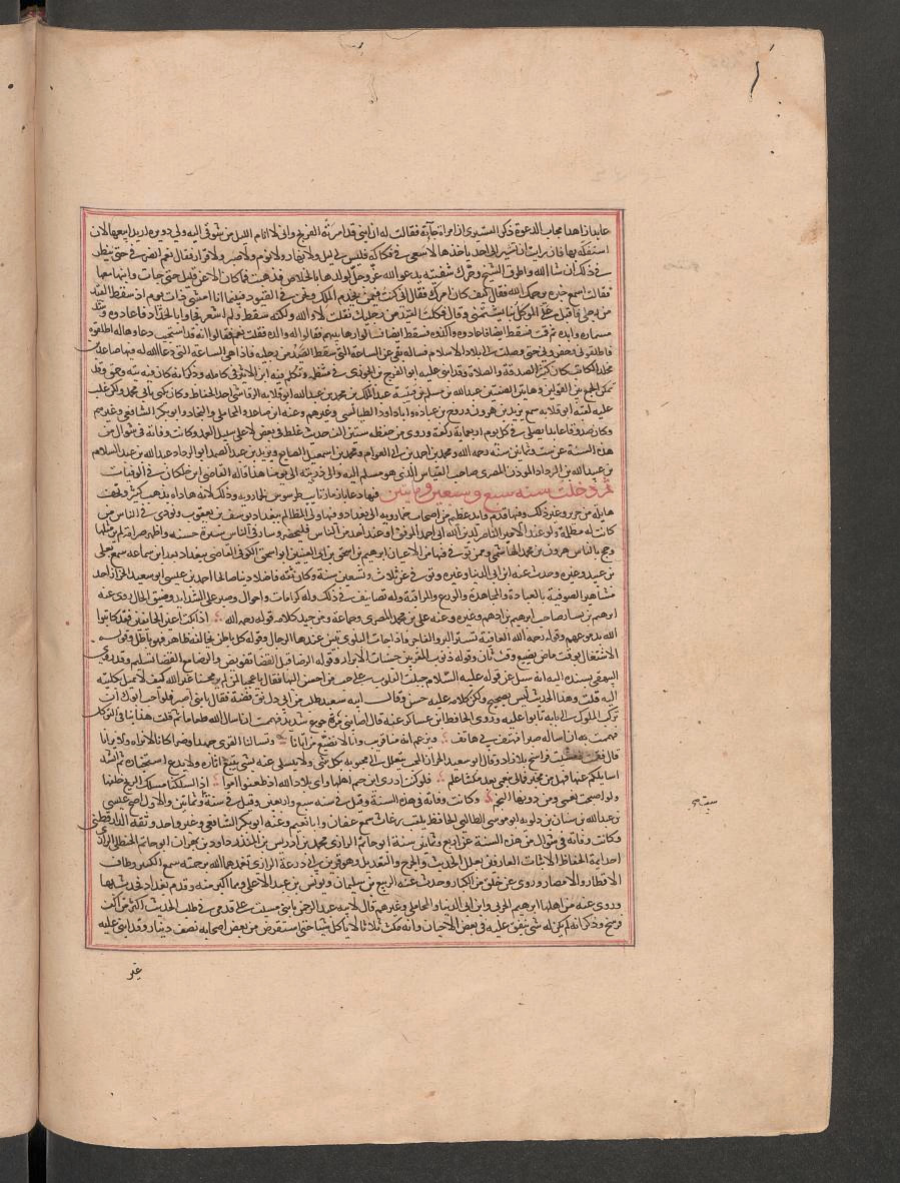 عابدا زاهدا مجاب الدعوة ذكر القشيري ان امراة جآءة فقالت له ان ابني قد اسرته الفرنج واني لا انام الليل من شوقي اليه ولي دويرة اريد ابيعها لان
استفكه بها فان رايت ان تشير الى احد ياخذها لاسعى في فكاكه فليس لي ليل ولا نهار ولا نوم ولا صبر ولا قرار فقال نعم انصرفي حتى ينظر
في ذلك ان شا الله واطرق الشيخ وحرك شفتيه يدعو الله عز وجل لولدها بالخلاص فذهبت فما كان الا عن قليل حتى جات وابنها معها
فقالت اسمع خبره يرحمك الله فقال كيف كان امرك فقال اني كنت فيمن يخدم الملك ونحن في القيود فبينما انا امشي ذات يوم اذ سقط القيد
من رجلي فاقبل علي الموكل بنا يشتمني وقال فككت القيد من رجليك فقلت لا والله ولكنه سقط ولم اشعر فجاوا بالحداد فاعادوه وشد
مسماره وابده ثم قمت فسقط ايضا فاعادوه واكدوه فسقط ايضا فسالوا رهبانهم فقالوا له والدة فقلت نعم فقالوا انه قد استجيب دعاوها له اطلقوه
فاطلقوني وخفروني حتى وصلت الى بلاد الاسلام فساله بقي عن الساعة التي سقط القيد من رجله فاذا هي الساعة التي دعا الله له فيها صاعد بن
مخلد الكاتب كان كثير الصدقة والصلاة وقد اثنى عليه ابو الفرج بن الجوزي في منتظمه وتكلم فيه ابن الاثير في كامله وذكر انه كان فيه تيه وحمق وقد
يمكن الجمع بين القولين وهاتين الصفتين عبد الله بن مسلم بن قتيبة عبد الملك بن محمد بن عبد الله ابو قلابه الرقاشي احد الحفاظ وكان يكنى بابي محمد ولكن غلب
عليه لقبه ابو قلابه سمع يزيد بن هرون وروح بن عباده وابا داود الطيالسي وغيرهم وعنه ابن صاعد والمحاملي والنجاد وابو بكر الشافعي وغيرهم
وكان صدوقا عابدا يصلي في كل يوم اربعماية ركعة وروى من حفظه ستين الف حديث غلط في بعض لا على سبيل العمد وكانت وفاته في شوال من
هذه السنة عن ست وثمانين سنة رحمه الله ومحمد بن احمد بن ابي العوام ومحمد بن اسمعيل الصايغ ويزيد بن عبد الصمد ابو الرداد عبد الله بن عبد السلام
بن عبيد الله بن الرداد الموذن المصري صاحب القياس الذي هو مسلم اليه والى ذريته الى يومنا هذا قاله القاضي ابن خلكان في الوفيات
ثم دخلت سنة سبع وسبعين ومايتين فيها دعا بازمار نايب طرسوس لخمارويه وذلك لانه هاداه بذهب كثير وتحف
هايلة من حرير وغير ذلك وفيها قدم قايد عظيم من اصحاب خمارويه الى بغداد وفيها ولي المظالم ببغداد يوسف بن يعقوب ونودي في الناس من
كانت له مظلمة ولو عند الامير الناصر لدين الله ابو احمد الموفق او عند احد من الناس فليحضر وسار في الناس سيرة حسنة واظهر صرامة لم ير مثلها
وحج بالناس هرون بن محمد الهاشمي وممن توفى فيها من الاعيان ابرهيم بن اسحق بن ابي العينين ابو اسحق الكوفي القاضي ببغداد بعد ابن سماعه سمع يعلى
بن عبيد وغيره وحدث عنه ابن ابي الدنيا وغيره وتوفى عن ثلاث وتسعين سنة وكان ثقة فاضلا دينا صالحا احمد بن عيسى ابو سعيد الخراز احد
مشاهير الصوفية بالعبادة والمجاهدة والورع والمراقبة وله تصانيف في ذلك وله كرامات واحوال وصبر على الشدايد وضيق الحال روى عنه
ابرهيم بن بشار صاحب ابرهيم بن ادهم وغيره وعنه علي بن محمد المصري وجماعة ومن جيد كلامه قوله رحمه الله اذا بكت اعين الخايفين فقد كاتبوا
الله بدموعهم وقوله رحمه الله العافية تستر البر والفاجر فاذا جات البلوى تبين عندها الرجال وقوله كل باطن يخالفه ظاهر فهو باطل وقوله
الاشتغال بوقت ماض يضيع وقت ثان وقوله ذنوب المقربين حسنات الابرار وقوله الرضا قبل القضا تفويض والرضا مع القضا تسليم وقد روى
البيهقي بسنده اليه انه سيل عن قوله عليه السلام جبلت القلوب على حب من احسن اليها فقال يا عجبا لمن لم ير محسنا غير الله كيف لا يميل بكليته
اليه قلت وهذا الحديث ليس بصحيح ولكن كلامه عليه حسن وقالت ابنه سعيد طلب من ابي دانق فضة فقال يا بني اصبر فلو احب ابوك ان
يركب الملوك الى بابه تابوا عليه وروى الحافظ ابن عساكر عنه قال اصابني مرة جوع شديد فهممت ان اسال الله طعاما ثم قلت هذا ينافي التوكل
فهمت به ان اساله صبرا فهتف بي هاتف ويزعم انه منا قريب وانا لا نضيع من اتانا ويسالنا القرى جهدا وصبرا كانا لا نراه ولا يرانا
قال فقمت ومشيت فراسخ بلا زاد وقال ابو سعيد الخراز المحب يتعلل الى محبوبه بكل شي ولا يتسلى عنه بشي يتبع اثاره ولا يدع استخباره ثم انشد
اسايلكم عنها فهل من مخبر فمالي بنعمى بعد مكثنا علم فلو كنت ادري اين خيم اهلها واي بلاد الله اذ ظعنوا اموا اذا لسلكنا مسلك الريح خلفها
ولو اصبحت نعمى ومن دونها النجم وكانت وفاته في هذه السنة وقيل في سنة سبع واربعين وقيل في سنة وثمانين والاول اصح عيسى
بن عبد الله بن سنان بن دلويه ابو موسى الطيالسي الحافظ يلقب رغاث سمع عفان وابا نعيم وعنه ابو بكر الشافعي وغير واحد وثقه الدارقطني
وكانت وفاته في شوال من هذه السنة عن اربع وثمانين سنة ابو حاتم الرازي محمد بن ادريس بن المنذر بن داود بن مهران ابو حاتم الحنظلي الرازي
احد ايمة الحفاظ الاثبات العارفين بعلل الحديث والجرح والتعديل وهو قرين ابي زرعة الرازي تغمدها الله برحمته سمع الكثير وطاف
الاقطار والامصار وروى عن خلق من الكبار وحدث عنه الربيع بن سليمان ويونس بن عبد الاعلى وهما اكبر منه وقدم بغداد فحدث بها
وروى عنه من اهلها ابرهيم الحربي وابن ابي الدنيا والمحاملي وغيرهم قال لابنه عبد الرحمن يا بني مشيت على قدمي في طلب الحديث اكثر من الف
فرسخ وذكر انه لم يكن له شي ينفق عليه في بعض الاحيان وانه مكث ثلاثا لا ياكل شيا حتى استقرض من بعض اصحابه نصف دينار وقد اثنى عليه
غير